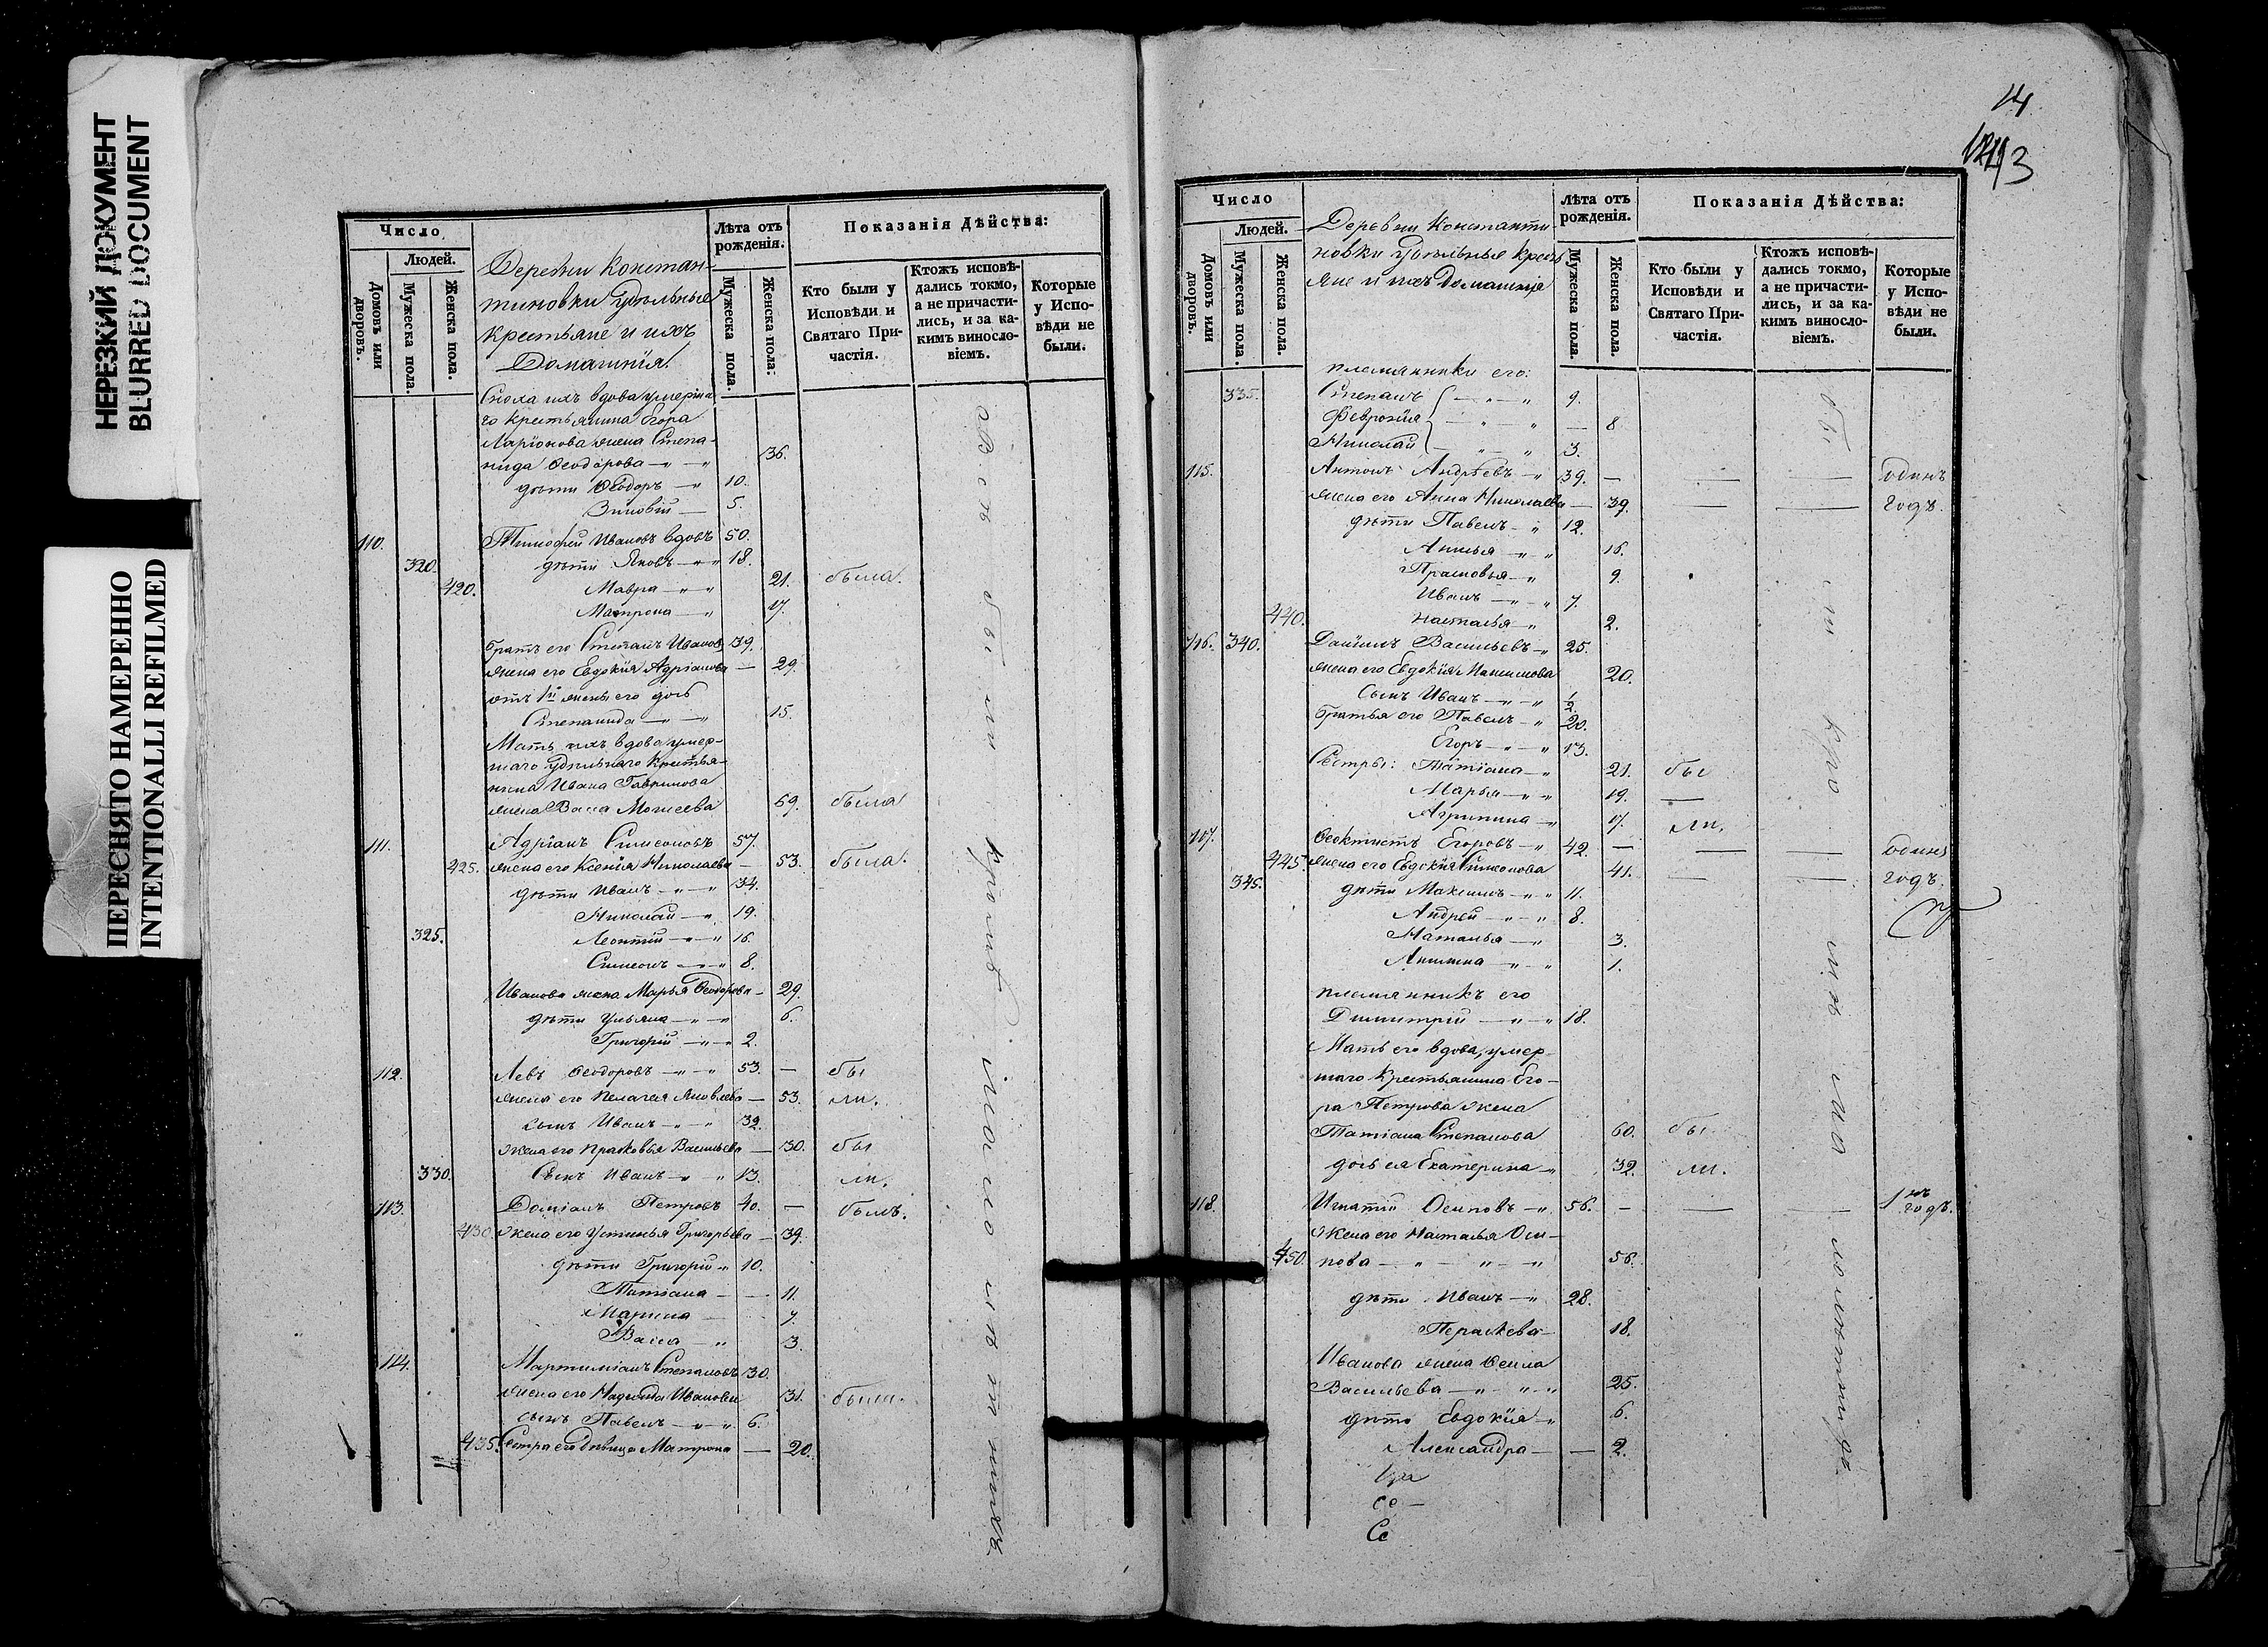 НЕРЕЗКИЙ ДОКУМЕНТ
BLURRED DOCUMENT
ПЕРЕСНЯТО НАМЕРЕННО
INTENTIONALLI REFILMED
Число
Людей.
Домовъ или дворовъ.
Мужеска пола.
Женска пола.
Деревни Констан-
тиновки Удѣльные
крестьяне и ихъ
Домашнія.
Лѣта отъ рожденія.
Мужеска пола.
Женска пола:
Показанія Дѣйства:
Кто были у Исповѣди и Святаго При-частія.
Ктожъ исповѣ-дались токмо, а не причасти-лись, и за ка-кимъ винослο-віемъ.
Которые у Испо-вѣди не были.
Сноха ихъ вдова умерша
го крестьянина Егора
Ларіонова жена Степа-
нида Ѳеодорова 36.
дѣти Ѳеодоръ 10.
Зиновій 5.
110. Тимофей Ивановъ вдовъ 50.
320. дѣти Яковъ 18.
420. Мавра 21. была.
Матрона 17.
братъ его Степанъ Иванов 39.
жена его Евдокія Адріанова — 29.
отъ 1й жены его дочь
Степанида 15.
Мать ихъ вдова умер-
шаго Удѣльнаго Крестья-
нина Ивана Гаврилова
жена Васса Моисеева 69. была
111. Адріанъ Симеоновъ 57.
425. жена его Ксенія Николаева — 53. была.
дѣти Иванъ 34.
Николай 19.
325. Леонтій 16.
Симеонъ 8.
Иванова жена Марья Ѳеодорова — 29.
дѣти Ульяна 6.
Григорій 2.
112. Левъ Ѳеодоровъ 53. — бы
жена его Пелагея Яковлева — 53. ли.
сынъ Иванъ 32.
Жена его Прасковья Васильева — 30. бы
330. Сынъ Иванъ 13. ли.
113. Доміанъ Петровъ 40. — былъ.
430. Жена его Устинья Григорьева — 39.
дѣти Григорій 10.
Татіана — 11.
Марина 7.
Васса 3.
114. Мартиміанъ Степановъ 30.
жена его Надежда Иванова 31. были.
сынъ Павелъ 6.
435. Сестра его дѣвица Матрона — 20.
14
13
Число
Людей.
Домовъ или дворовъ.
Мужеска пола.
Женска пола.
Деревни Константи-
новки Удѣльныя кресть
яне и ихъ Домашнія
Лѣта отъ рожденія.
Мужеска пола.
Женска пола.
Показанія Дѣйства:
Кто были у Исповѣди и Святаго При-частія.
Ктожъ исповѣ-дались токмо, а не причасти-лись, и за ка-кимъ винослο-віемъ.
Которые у Испо-вѣди не были.
племянники его:
335. Степанъ 9.
Февронія — 8
Николай 3.
115. Антонъ Андрѣевъ 39. — — — Одинъ
жена его Анна Николаева — 39. — — годъ.
дѣти Павелъ 12.
Анисья 16.
Прасковья 9.
Иванъ 7.
440. Наталья 2.
116. 340. Даніилъ Васильевъ 25.
жена его Евдокія Максимова 20.
Сынъ Иванъ 1/2.
братья его Павелъ 20.
Егоръ 13.
Сестры: Татіана 21. бы
Марья 19. —
Агрипина 17. ли.
117. Ѳеоктистъ Егоровъ 42. — — — Одинъ
445. жена его Евдокія Симеонова 41. — — годъ.
345. дѣти Максимъ 11.
Андрей 8.
Наталья 3.
Анисия 1.
племянникъ его
Димитрій 18.
Мать его вдова, умер-
шаго Крестьянина Его-
ра Петрова Жена
Татіана Степанова 60. бы
дочь ея Екатерина 32. ли.
118. Игнатій Осиповъ 56. — — — 1нъ годъ.
Жена его Наталья Оси-
450. пова 56.
дѣти Иванъ 28.
Параскева 18.
Иванова жена Ѳекла
Васильева 25.
дѣти Евдокія 6.
Александра — 2.